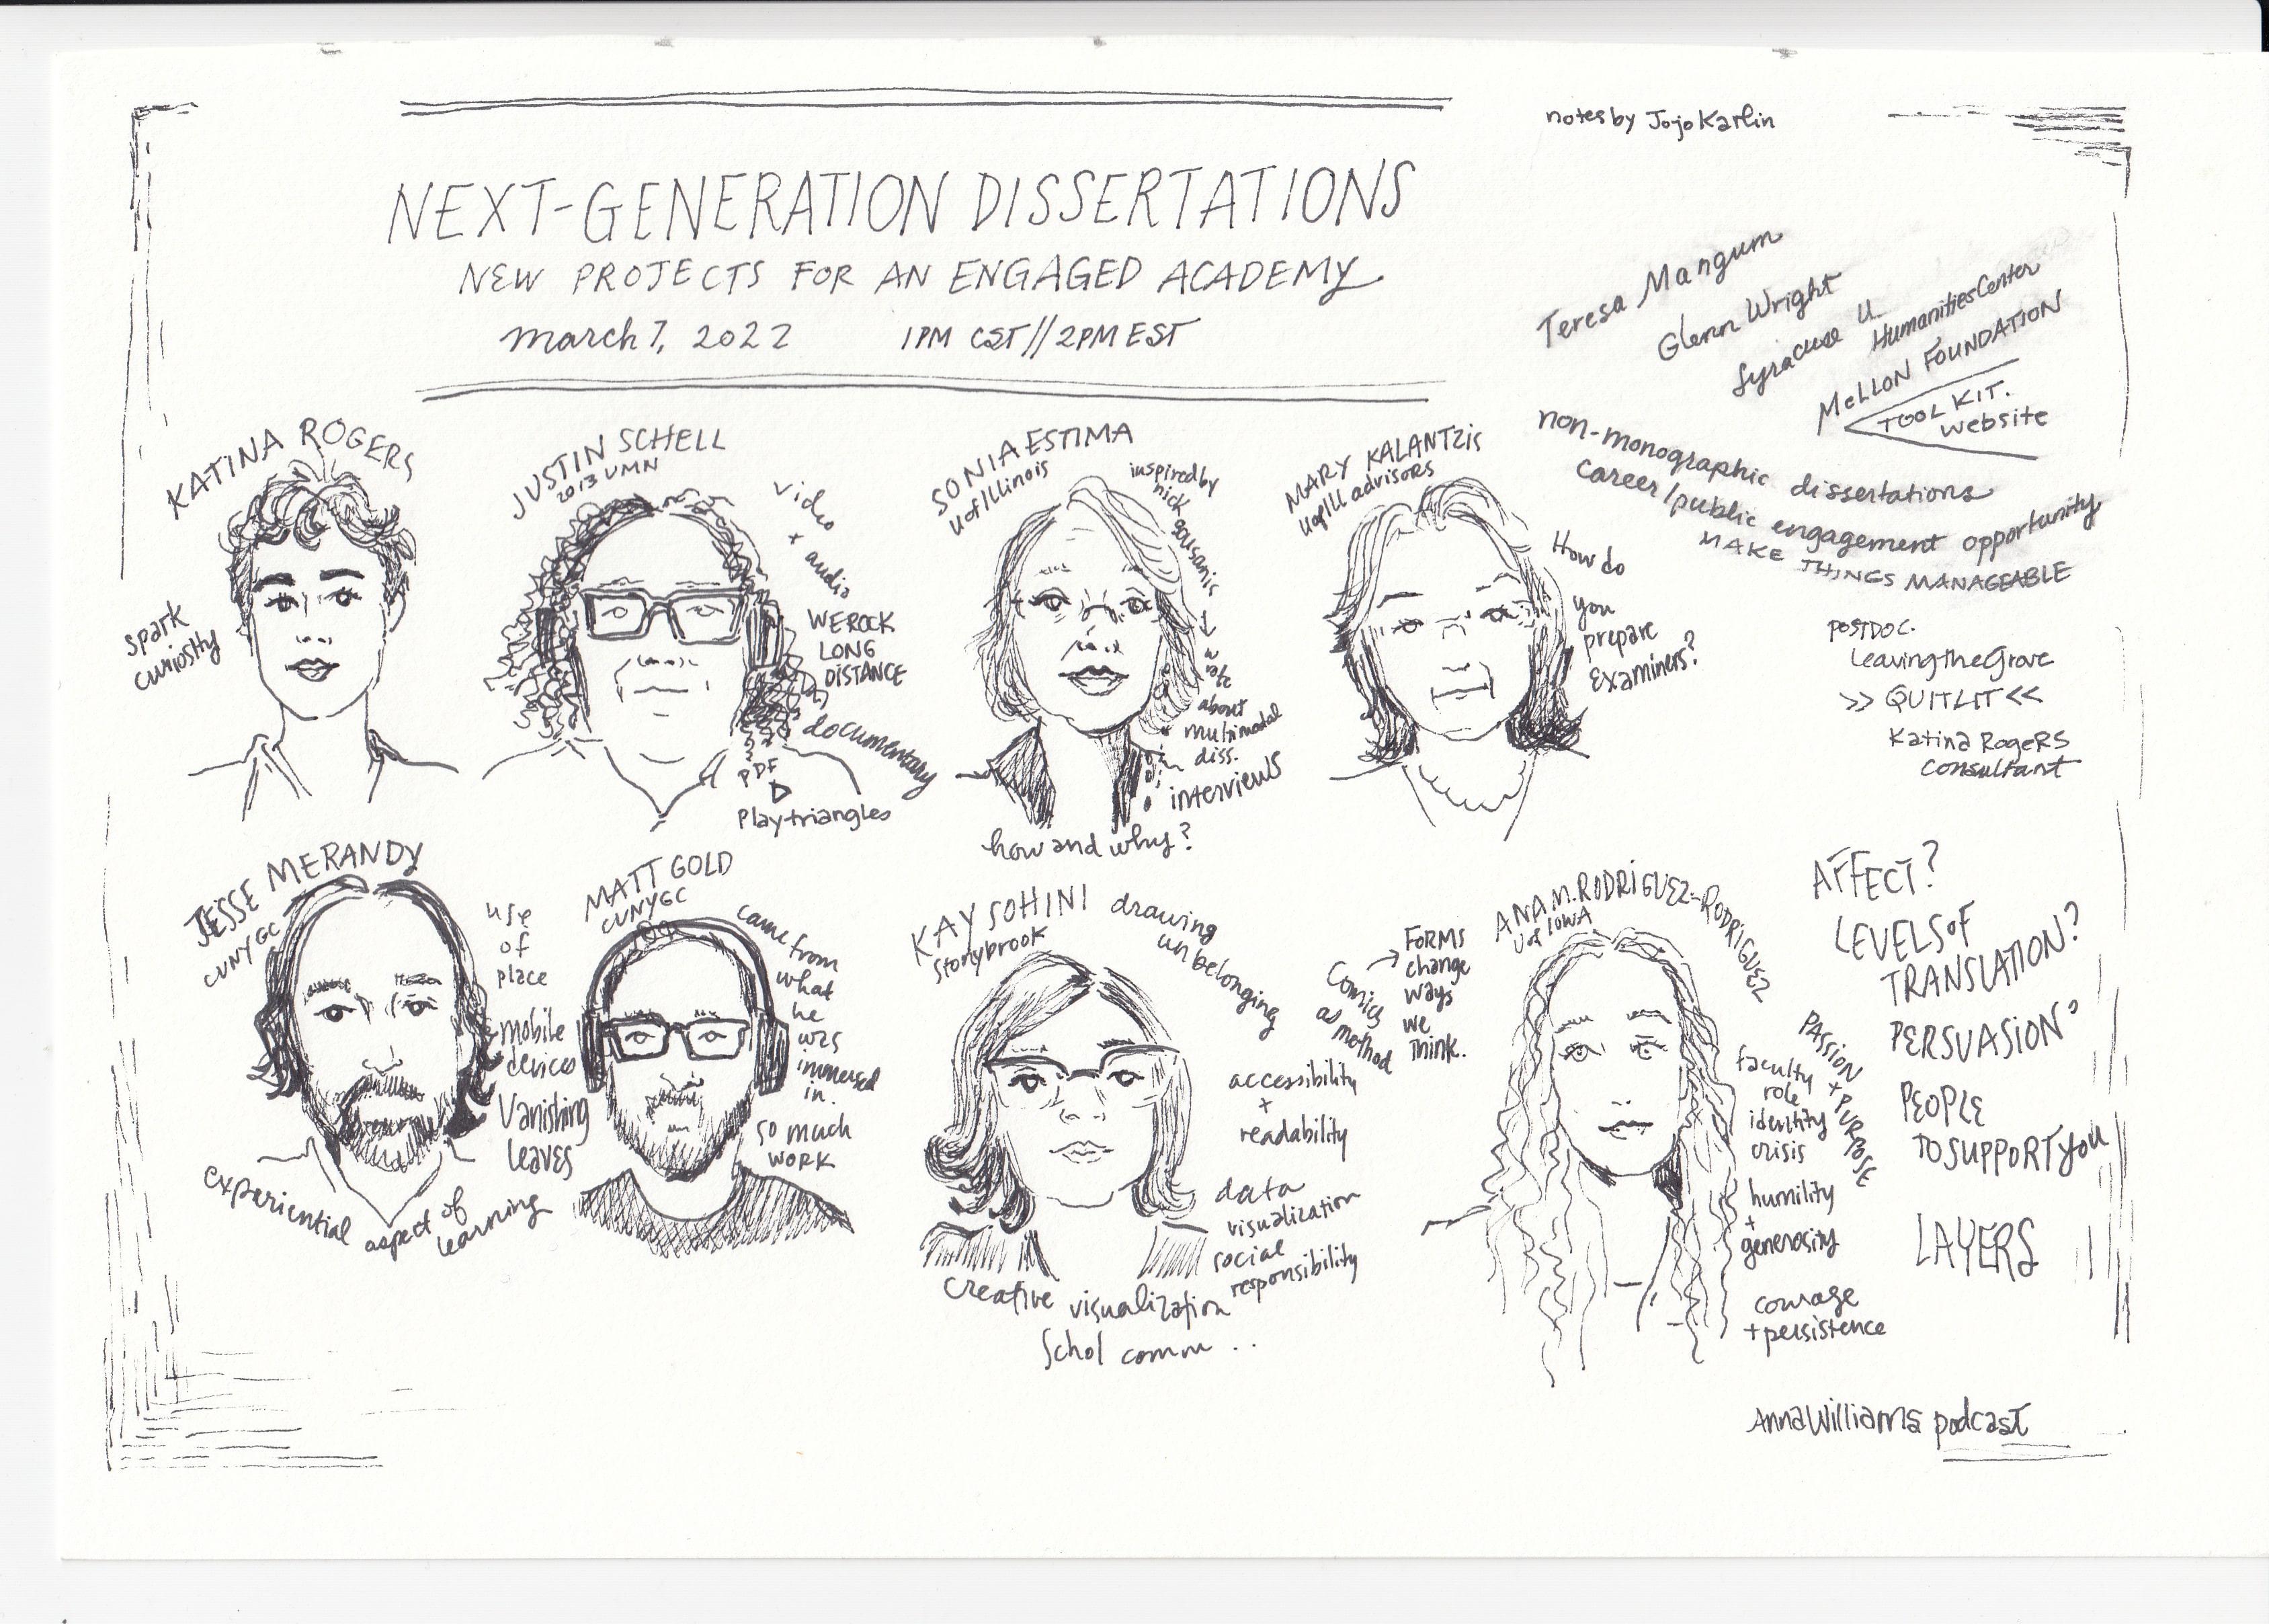 notes by Jojo Karlin
NEXT-GENERATION DISSERTATIONS
NEW PROJECTS FOR AN ENGAGED ACADEMY
March 7, 2022 1PM CST//2PM EST
Teresa Mangum
Glenn Wright
Syracuse U. Humanities Center
MELLON FOUNDATION
TOOL KIT.
website
non-monographic dissertations
career/public engagement opportunity
MAKE THINGS MANAGEABLE
POSTDOC.
Leaving the Grove
>> QUITLIT <<
Katina Rogers
consultant
KATINA ROGERS
spark
curiosity
JUSTIN SCHELL
2013 UMN
video
+ audio
WE ROCK
LONG
DISTANCE
documentary
PDF
Play triangles
SONIA ESTIMA
U of Illinois
inspired by
nick
sousanis
about
multimodal
diss.
interviews
how and why?
MARY KALANTZIS
U of Ill advisors
How do
you
prepare
examiners?
JESSE MERANDY
CUNY GC
use
of
place
mobile
devices
Vanishing
leaves
experiential
aspect of
learning
MATT GOLD
CUNY GC
came from
what
he
was
immersed
in.
so much
work
KAY SOHINI
Stonybrook
drawing
unbelonging
Comics
as method
FORMS
change
ways
we
think.
accessibility
+
readability
data
visualization
social
responsibility
creative visualization
Schol comm ..
ANA M. RODRIGUEZ-RODRIGUEZ
U of IOWA
PASSION + PURPOSE
faculty
role
identity
crisis
humility
+
generosity
courage
+ persistence
AFFECT?
LEVELS OF
TRANSLATION?
PERSUASION?
PEOPLE
TO SUPPORT YOU
LAYERS
Anna Williams podcast